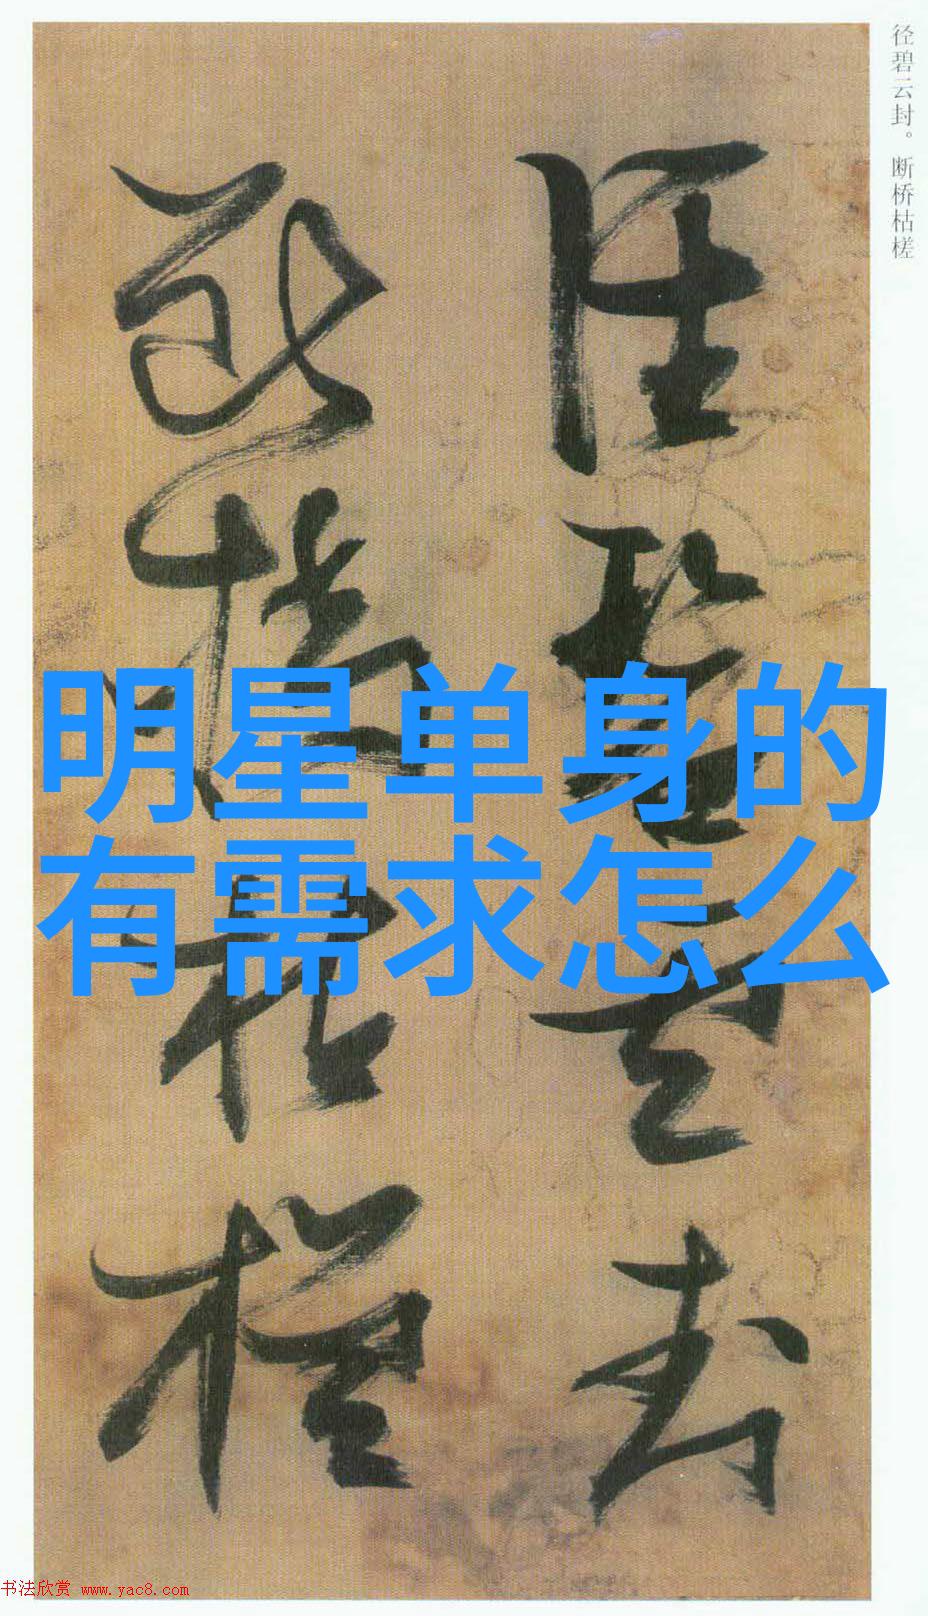 径碧云封。断桥枯槎
径碧云封
断桥枯槎
明星单身的
有需求怎么
书法欣赏 www.yac8.com